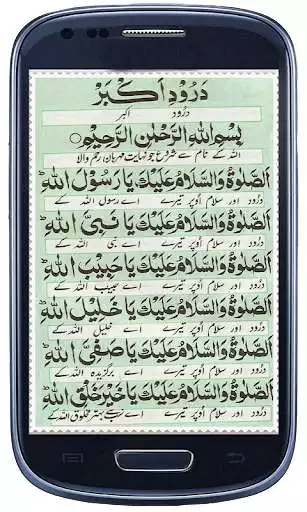 دَرُودِ اَکْبَرْ
درُود اکبر
بِسْمِ اللهِ الرَّحْمٰنِ الرَّحِيْمِ
اللہ کے نام سے شروع جو نہایت مہربان رحم والا
اَلصَّلٰوةُ وَالسَّلَامُ عَلَيْكَ يَا رَسُوْلَ اللهِ ط
درُود اور سلام اُوپر تیرے اے رسول اللہ کے
اَلصَّلٰوةُ وَالسَّلَامُ عَلَيْكَ يَا نَبِيَّ اللهِ ط
درُود اور سلام اُوپر تیرے اے نبی اللہ کے
اَلصَّلٰوةُ وَالسَّلَامُ عَلَيْكَ يَا حَبِيْبَ اللهِ ط
درُود اور سلام اُوپر تیرے اے حبیب اللہ کے
اَلصَّلٰوةُ وَالسَّلَامُ عَلَيْكَ يَا خَلِيْلَ اللهِ ط
درُود اور سلام اُوپر تیرے اے خلیل اللہ کے
اَلصَّلٰوةُ وَالسَّلَامُ عَلَيْكَ يَا صَفِيَّ اللهِ ط
درُود اور سلام اُوپر تیرے اے برگزیدہ اللہ کے
اَلصَّلٰوةُ وَالسَّلَامُ عَلَيْكَ يَا خَيْرَ خَلْقِ اللهِ ط
درُود اور سلام اُوپر تیرے اے سب سے بہتر مخلوق اللہ کے